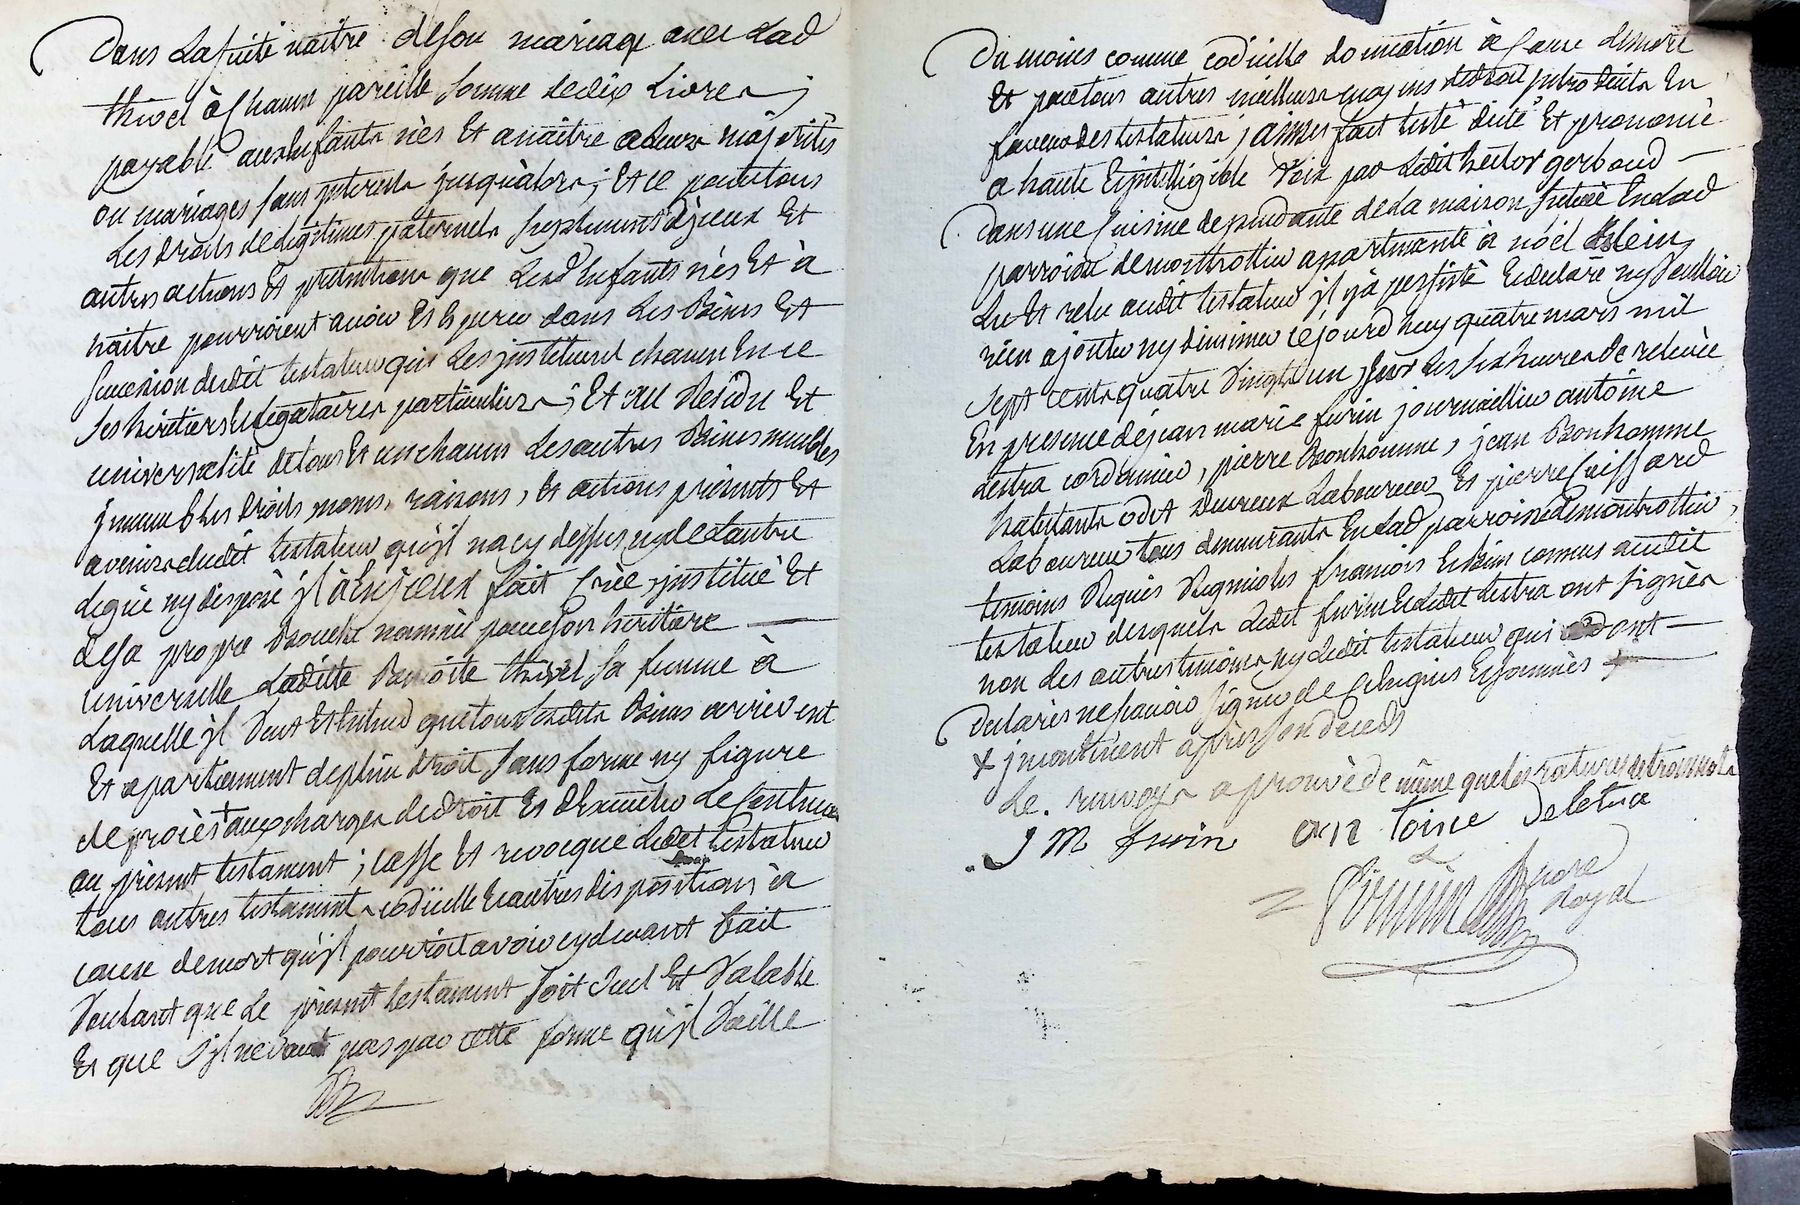 Dans La suitte naitre de son mariage avec Lad
thivel à Chacun pareille somme de dix Livres ;
payable auxd Enfants nès Et a naitre a Leurs majorités
ou mariages sans jnterests jusqu'alors ; Et ce pour tous
Les droits de Legitimes paternels suplements d'jceux Et
autres actions Et pretentions que Lesd Enfants nès Et à
naitre pourroient avoir Et Esperer dans Les Biens Et
succession dudit testateur qui Les jnstituent chacun En ce
ses heritiers Et legataires particuliers ; Et au Residu Et
universalité de tous Et un chacuns Les autres Biens meubles
jmmeubles droits, noms, raisons, Et actions presents Et
avenirs dudit testateur qu'jl n'a cy dessus ny de L'autre
Legué ny disposé jl à En jceux fait Créé, jnstitué Et
de sa propre Bouche nommée pour son heritiere
universelle Laditte Benoite thivel sa femme à
Laquelle jl Veut Et Entend que tous Lesdits Biens arrivent
Et apartiennent de plein droit sans forme ny figure
de procès + aux charges de droit Et d'Executer Le Contenu
au present testament ; casse Et revocque Ledit testateur
tous autres testaments, codicille Et autres dispositions à
cause de mort qu'jl pourroit avoir cy devant fait
Voulant que Le present testament soit seul Et Valable
Et que s'jl ne Vaut pas par cette forme qu'jl Vaille
Du moins comme codicille donnation à Cause de mort
Et par tous autres meilleurs moyens de droit jntroduits En
faveur des testateurs ; ainsy fait testé dicté Et prononcé
a haute Et jntelligible Voix par Ledit hector gerbaud
Dans une Cuisine dependante de La maison scituée En Lad
parroisse de montrottier apartenante à nöel
Lu Et relu audit testateur jl y a persisté Et declaré n'y Vouloir
rien ajouter ny diminuer ce jourd huy quatre mars mil
sept cents quatre Vingts un sur Les six heures de relevée
En presence de jean marie furin journaillier antoine
Lestra cordonnier, pierre Bonhomme, jean Bonhomme
habitants Laboureur Et pierre
Laboureur tous demeurants En Lad parroisse de montrottier,
temoins Requis Regnicoles francois Et Bien connus audit
testateur desquels Ledit furin Et Ledit Lestra ont signés
non Les autres temoins ny Ledit testateur qui ont
declarés ne sçavoir signer de ce Enquis Et sommés
+ jncontinent après son deceds
Le. renvoy approuvé de même que les ratures de trois mots
J M furin an toine De letra
nore
Royal